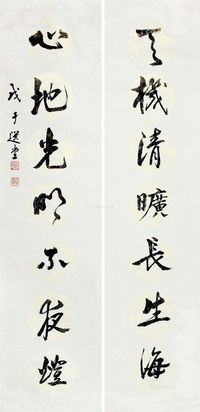 天機清曠長生海
心地光明不夜燈
戊子選堂